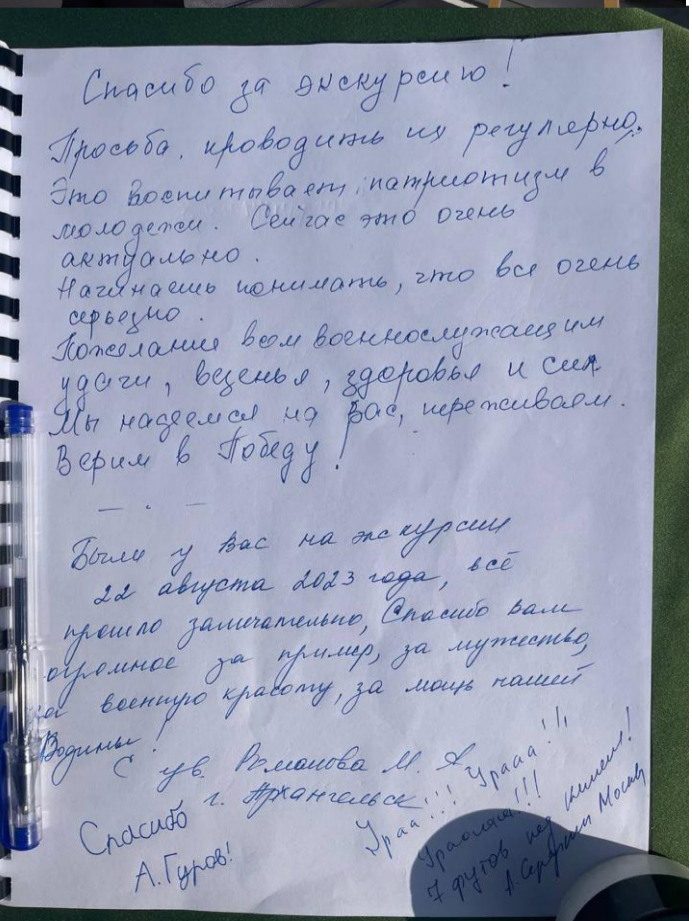 Спасибо за экскурсию!
Просьба, проводить их регулярно.
Это воспитывает патриотизм в
молодежи. Сейчас это очень
актуально.
Начинаешь понимать, что все очень
серьезно.
Пожелание всем военнослужащим
удачи, везенья, здоровья и сил
Мы надеемся на Вас, переживаем.
Верим в Победу!
— . —
Были у Вас на экскурсии
22 августа 2023 года, всё
прошло замечательно, Спасибо вам
огромное за пример, за мужество,
за военную красоту, за мощь нашей
Родины!
С ув. Романова М. А.
г. Архангельск
Спасибо
А. Гуров!
Ураа!!! Урааа!!!
!!!
7 футов под килем!
А. Москва